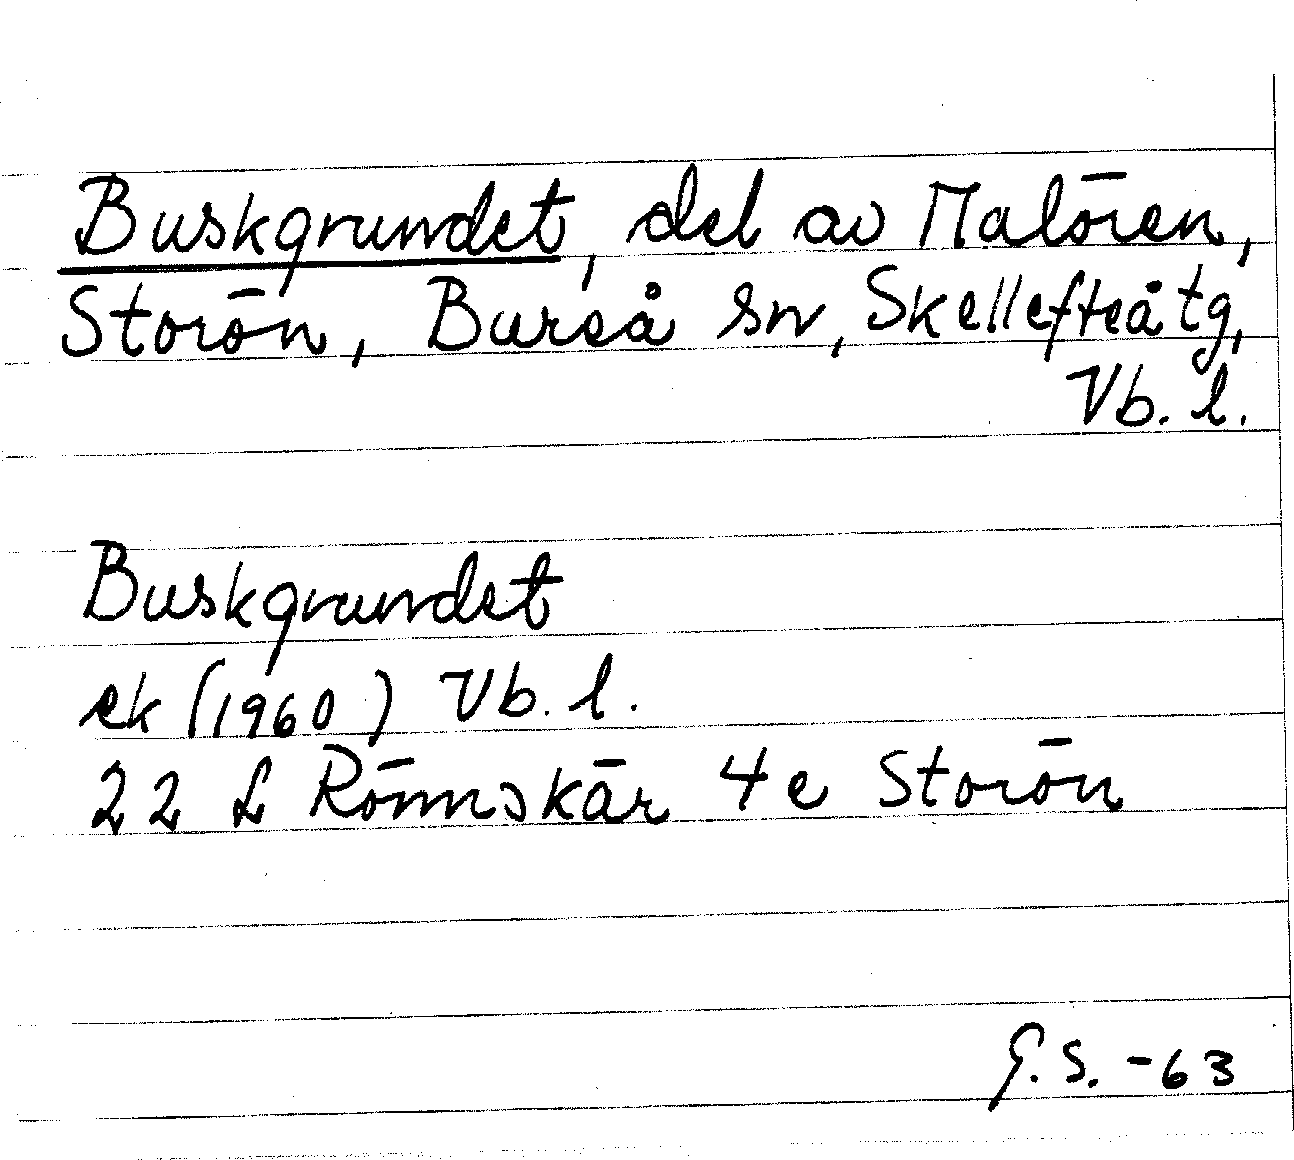 Buskgrundet, del av Malören,
Storön, Bureå sn, Skellefteå tg,
Vb. l.
Buskgrundet
ek (1960) Vb. l.
22 L Rönnskär 4e Storön
G. S. -63